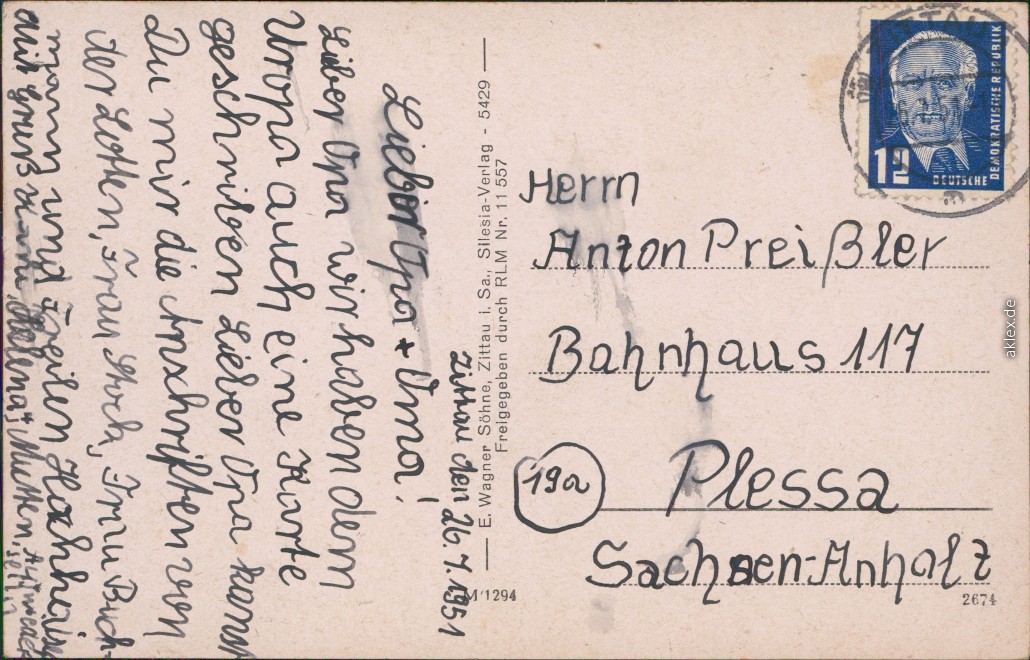 Zittau den 26.7.1951
Lieber Opa + Oma!
Lieber Opa wir haben dem
Uropa auch eine Karte
geschrieben Lieber Opa kannst
Du mir die Anschriften von
der Lotten, Frau Koch, Frau Buch-
mann und Freilen Hochheim
auch Gruß
Mutter,
E. Wagner Söhne, Zittau i. Sa., Silesia-Verlag - 5429
Freigegeben durch RLM Nr. 11 557
M 1294
Herrn
Anton Preißler
Bahnhaus 117
19a
Plessa
Sachsen-Anhalt
2674
DEUTSCHE
DEMOKRATISCHE REPUBLIK
ZITTAU
aklex.de